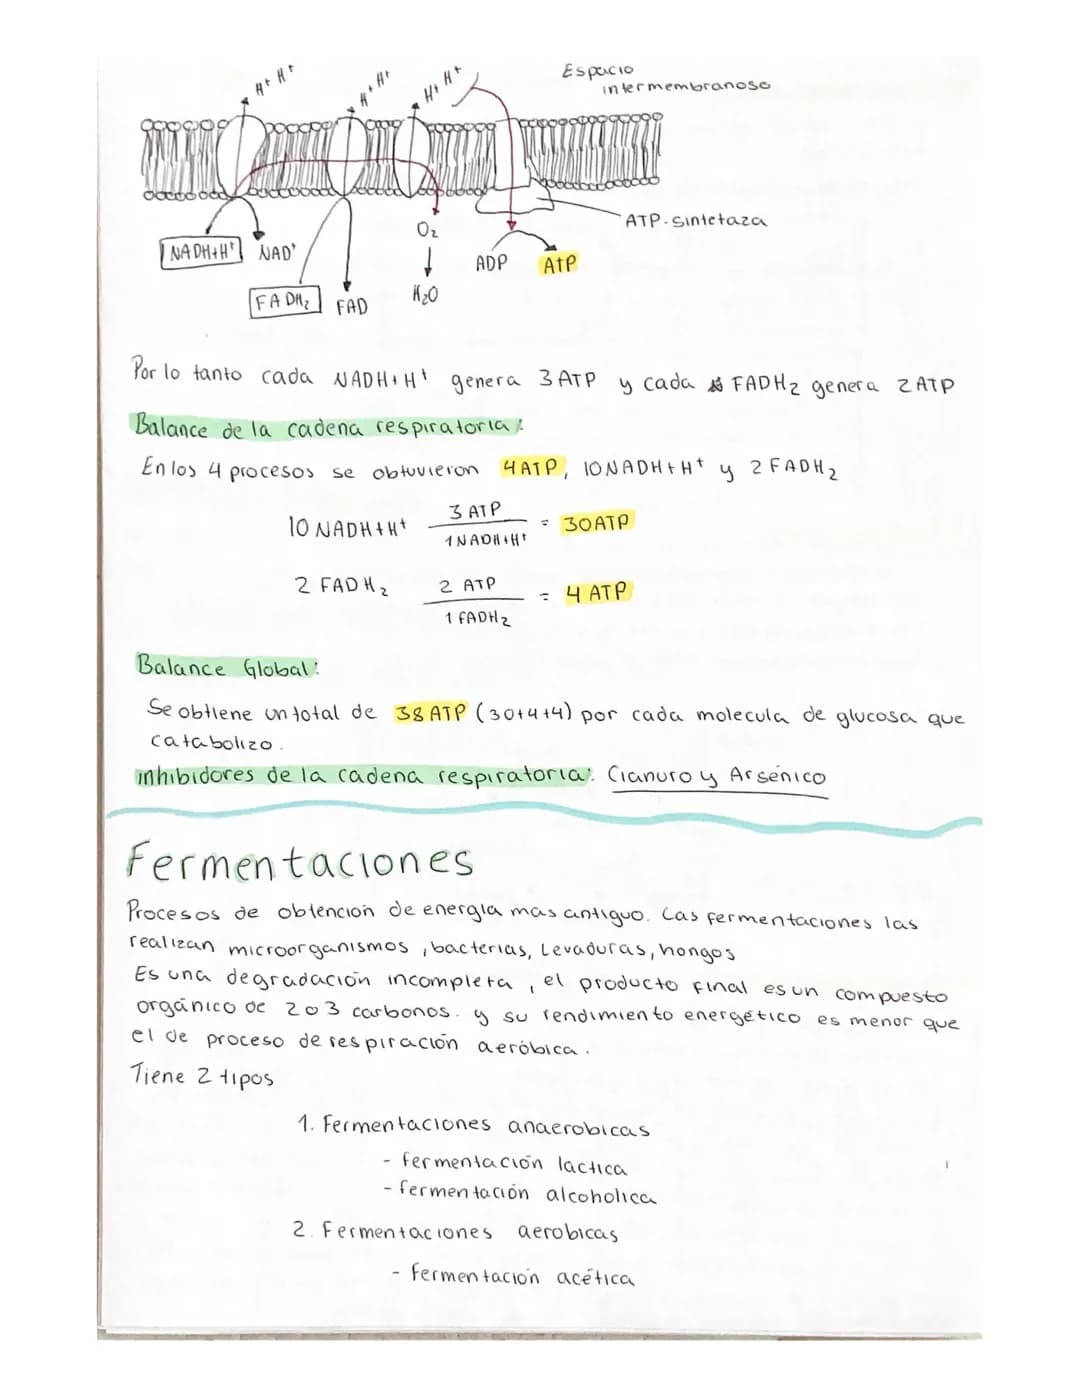 H+ H+
H+ H+
H+ H+
Espacio
intermembranoso
ATP-sintetaza
O2
NADH+H+ NAD+
ADP ATP
FADH2 FAD
H2O
Por lo tanto cada NADH+H+ genera 3 ATP y cada FADH2 genera 2 ATP
Balance de la cadena respiratoria:
En los 4 procesos se obtuvieron 4 ATP, 10 NADH+H+ y 2 FADH2
10 NADH+H+ 3 ATP / 1 NADH+H+ = 30 ATP
2 FADH2 2 ATP / 1 FADH2 = 4 ATP
Balance Global:
Se obtiene un total de 38 ATP (30+4+4) por cada molecula de glucosa que
catabolizo.
inhibidores de la cadena respiratoria: Cianuro y Arsénico
Fermentaciones
Procesos de obtención de energía mas antiguo. Las fermentaciones las
realizan microorganismos, bacterias, Levaduras, hongos
Es una degradación incompleta, el producto final es un compuesto
orgánico de 2 o 3 carbonos. y su rendimiento energético es menor que
el de proceso de respiración aeróbica.
Tiene 2 tipos
1. Fermentaciones anaerobicas
- fermentación lactica
- fermentación alcoholica
2. Fermentaciones aerobicas
- fermentación acética